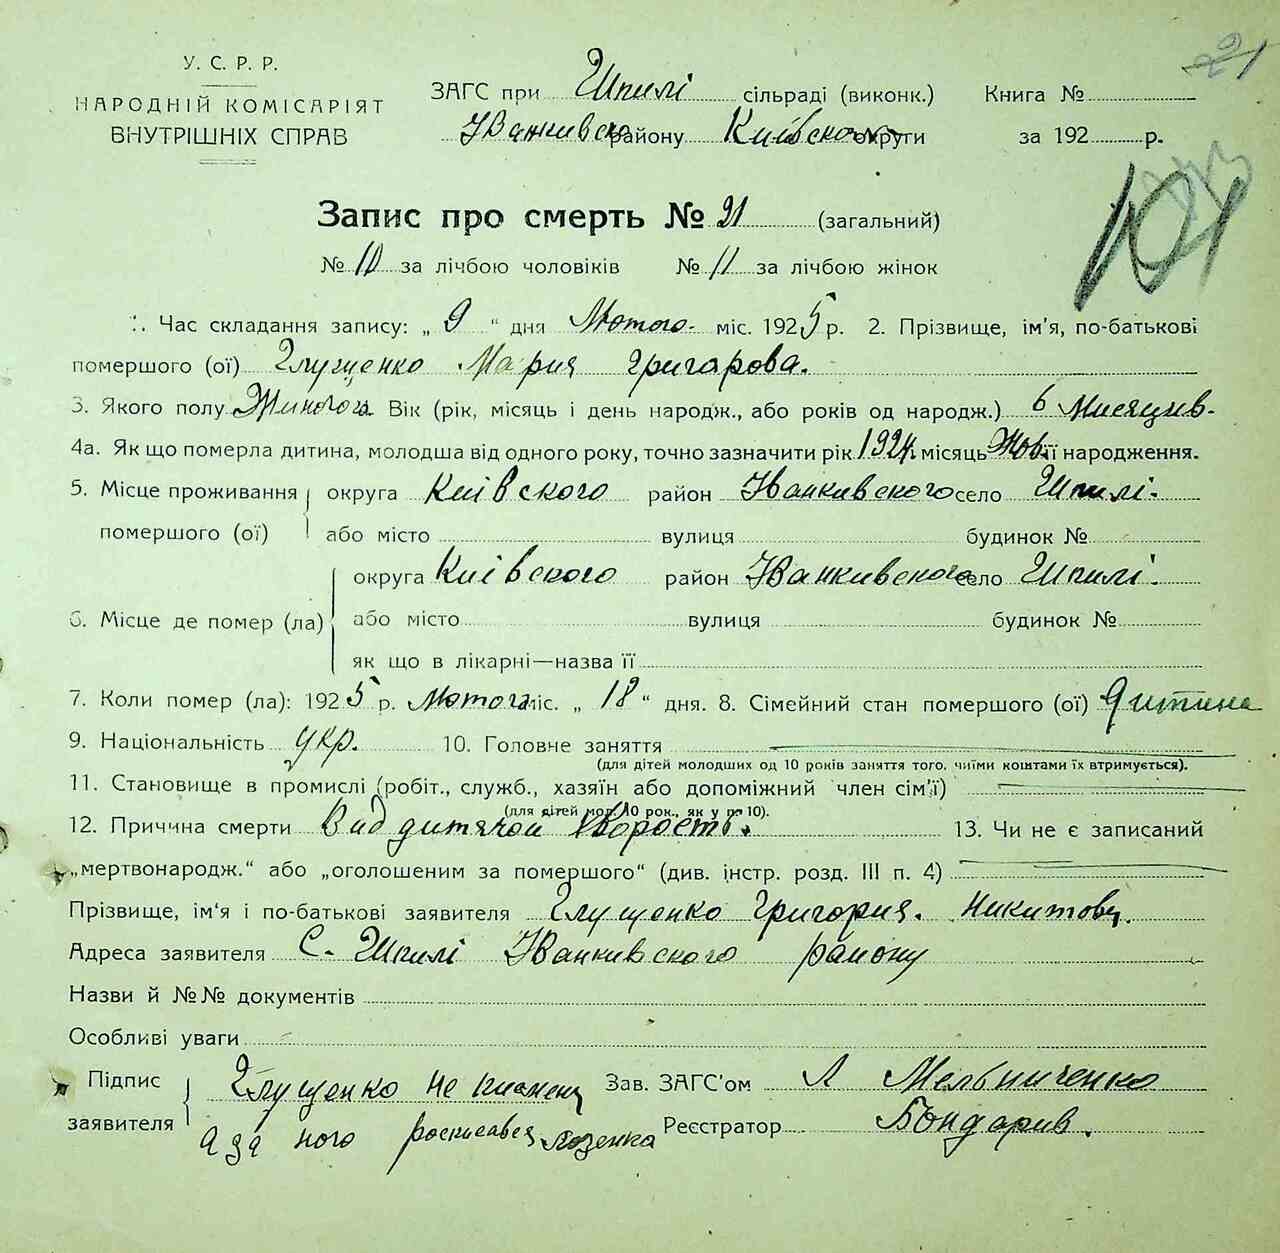 21
У. С. Р. Р.
НАРОДНІЙ КОМІСАРІЯТ
ВНУТРІШНІХ СПРАВ
ЗАГС при Шпилі сільраді (виконк.) Книга №
Іванкивско району Київского округи за 192 р.
101
Запис про смерть № 21 (загальний)
№ 10 за лічбою чоловіків № 11 за лічбою жінок
1. Час складання запису: „ 9 “ дня Лютого міс. 1925 р. 2. Прізвище, ім'я, по-батькові
помершого (ої) Глущенко Мария Григарова.
3. Якого полу Жиночога Вік (рік, місяць і день народж., або років од народж.) 6 Мисяцив.
4а. Як що померла дитина, молодша від одного року, точно зазначити рік 1924. місяць Жов її народження.
5. Місце проживання округа Київского район Іванкивского село Шпилі.
помершого (ої) або місто вулиця будинок №
округа Київского район Іванкивского село Шпилі.
6. Місце де помер (ла) або місто вулиця будинок №
як що в лікарні—назва її
7. Коли помер (ла): 1925 р. Лютога міс. „ 18 “ дня. 8. Сімейний стан помершого (ої) дитина
9. Національність укр. 10. Головне заняття
(для дітей молодших од 10 років заняття того, чиїми коштами їх втримується).
11. Становище в промислі (робіт., служб., хазяїн або допоміжний член сім'ї)
(для дітей мол. 10 рок., як у п. 10).
12. Причина смерти Вид дитячой хворости. 13. Чи не є записаний
„мертвонародж.“ або „оголошеним за помершого“ (див. інстр. розд. III п. 4)
Прізвище, ім'я і по-батькові заявителя Глущенко Григория. Никитову.
Адреса заявителя С. Шпилі Іванкивского району
Назви й №№ документів
Особливі уваги
Підпис Глущенко не писмену Зав. ЗАГС'ом Л Мельниченко
заявителя а за него росписався Лозенка Реєстратор Бондарив.